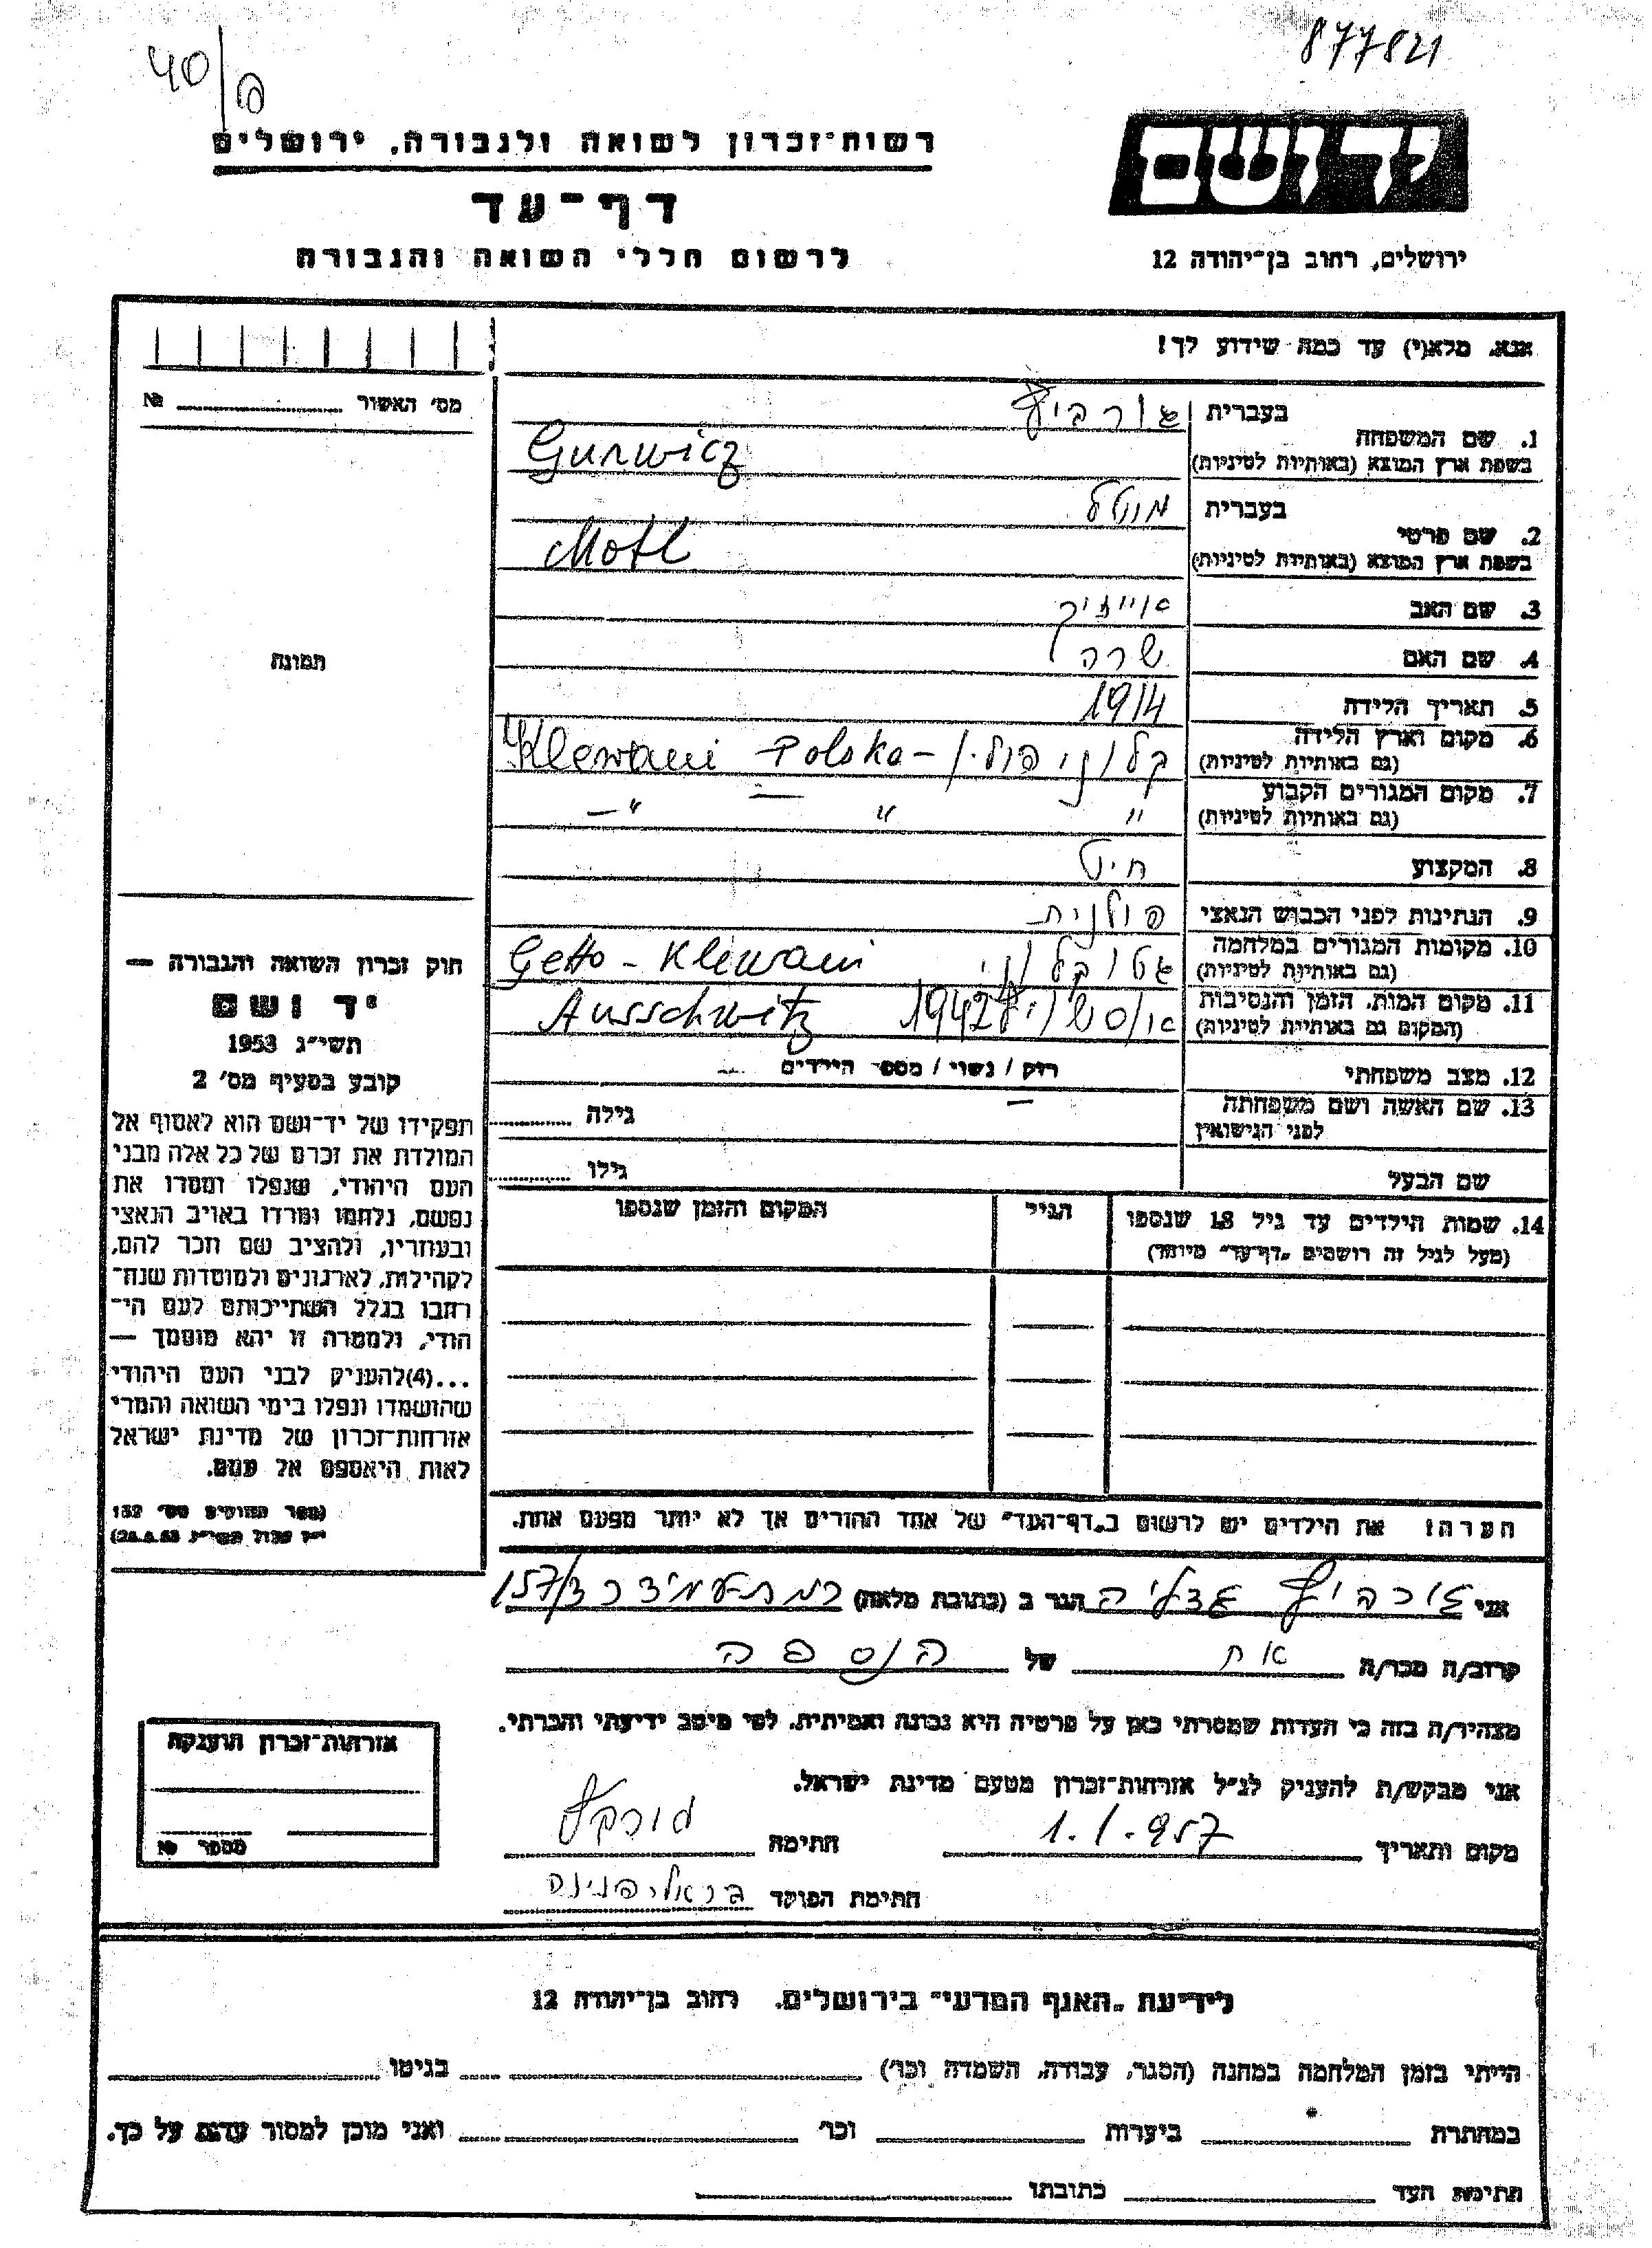 877821
40/פ
רשות־זכרון לשואה ולגבורה, ירושלים
יד ושם
דף־עד
לרשום חללי השואה והגבורה
ירושלים, רחוב בן־יהודה 12
אנא, מלא(י) עד כמה שידוע לך!
מס׳ האשור № 
1. שם המשפחה
בעברית גורביץ
בשפת ארץ המוצא (באותיות לטיניות) Gurwicz
2. שם פרטי
בעברית מוטל
בשפת ארץ המוצא (באותיות לטיניות) Motl
3. שם האב אייזיק
4. שם האם שרה
5. תאריך הלידה 1914
6. מקום וארץ הלידה
(גם באותיות לטיניות) קלוני פולין - Klewani - Polska
7. מקום המגורים הקבוע
(גם באותיות לטיניות) " " — " —
8. המקצוע חיט
9. הנתינות לפני הכבוש הנאצי פולנית
10. מקומות המגורים במלחמה
(גם באותיות לטיניות) גטו קלוני Getto - Klewani
11. מקום המות, הזמן והנסיבות
(המקום גם באותיות לטיניות) אושויץ 1942 Ausschwitz
12. מצב משפחתי רוק / נשוי / מספר הילדים —
13. שם האשה ושם משפחתה
לפני הנישואין — גילה
שם הבעל גילו
14. שמות הילדים עד גיל 18 שנספו
(מעל לגיל זה רושמים „דף־עד" מיוחד)
הגיל
המקום והזמן שנספו
תמונה
חוק זכרון השואה והגבורה —
יד ושם
תשי״ג 1953
קובע בסעיף מס׳ 2
תפקידו של יד־ושם הוא לאסוף אל
המולדת את זכרם של כל אלה מבני
העם היהודי, שנפלו ומסרו את
נפשם, נלחמו ומרדו באויב הנאצי
ובעוזריו, ולהציב שם וזכר להם,
לקהילות, לארגונים ולמוסדות שנח־
רחבו בגלל השתייכותם לעם הי־
הודי, ולמטרה זו יהא מוסמך —
...(4)להעניק לבני העם היהודי
שהושמדו ונפלו בימי השואה והמרי
אזרחות־זכרון של מדינת ישראל
לאות היאספם אל עמם.
(ספר החוקים מס׳ 132
הערה! את הילדים יש לרשום ב„דף־העד" של אחד ההורים אך לא יותר מפעם אחת.
אני גורביץ גדליה הגר ב (כתובת מלאה) 157/3
קרוב/ה מכר/ה אח של הנספה
מצהיר/ה בזה כי העדות שמסרתי כאן על פרטיה היא נכונה ואמיתית, לפי מיטב ידיעתי והכרתי.
אני מבקש/ת להעניק לנ״ל אזרחות־זכרון מטעם מדינת ישראל.
מקום ותאריך 1.1.957 חתימה
חתימת הפוקד בראלי פנינה
אזרחות־זכרון הוענקה
מספר №
לידיעת „האגף המדעי" בירושלים, רחוב בן־יהודה 12
הייתי בזמן המלחמה במחנה (הסגר, עבודה, השמדה וכו׳) בגיטו
במחתרת ביערות וכו׳ ואני מוכן למסור עדות על כך.
חתימת העד כתובתו